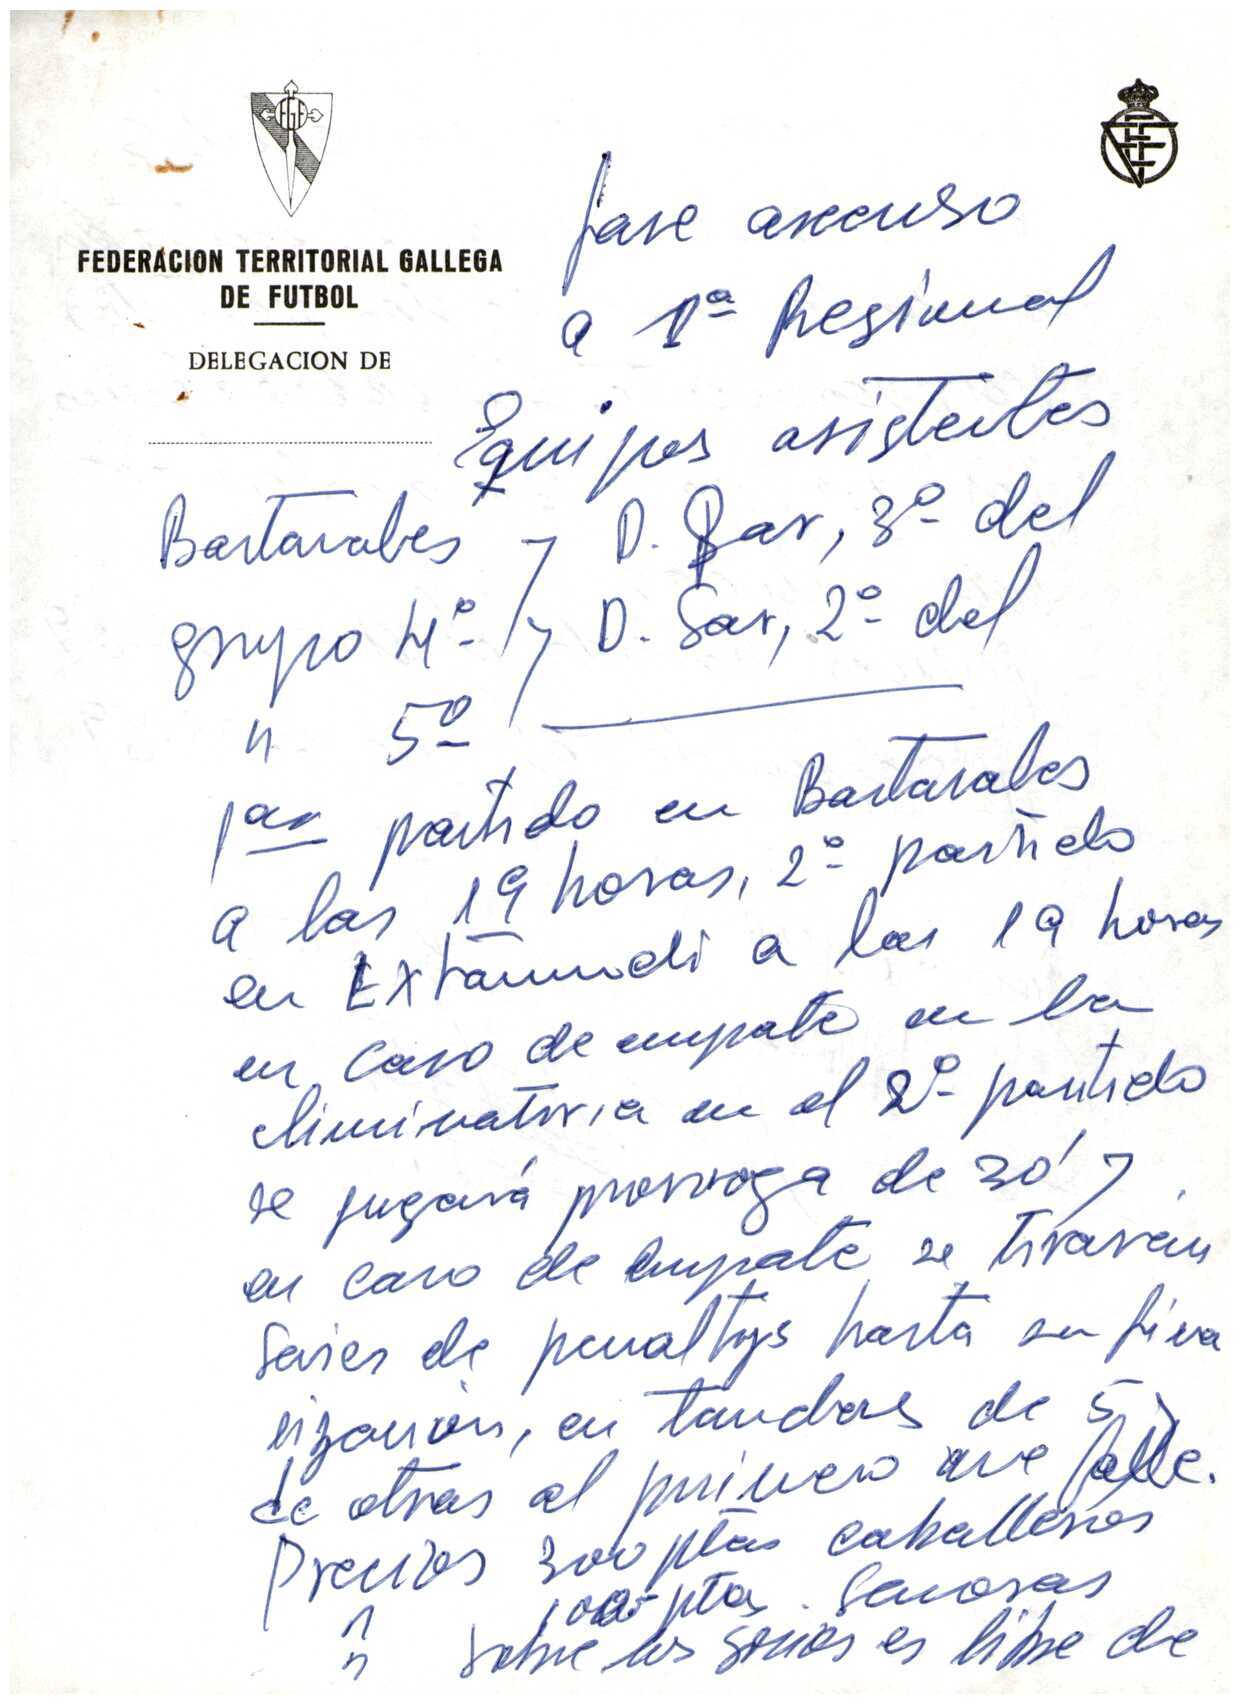 FGF
FEDERACION TERRITORIAL GALLEGA
DE FUTBOL
DELEGACION DE
fase ascenso
a 1ª Regional
Equipos asistentes
Bastavales y D. Sar, 3º del
grupo 4º y D. Sar, 2º del
" 5º
1er partido en Bastavales
a las 19 horas, 2º partido
en Extramundi a las 19 horas
en caso de empate en la
eliminatoria en el 2º partido
se jugará prorroga de 30' y
en caso de empate se tirarán
Series de penaltys hasta su fina
lización, en tandas de 5 y
de otras al primero que falle.
Precios 300 ptas caballeros
" 100 ptas. Senoras
" Sobre los socios es libre de